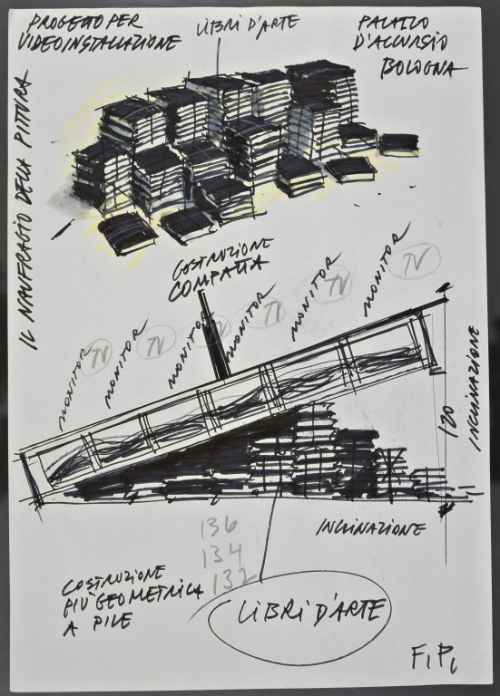 PROGETTO PER
VIDEOINSTALLAZIONE
LIBRI D'ARTE
PALAZZO
D'ACCURSIO
BOLOGNA
IL NAUFRAGIO DELLA PITTURA
COSTRUZIONE
COMPATTA
MONITOR
TV
MONITOR
TV
MONITOR
TV
MONITOR
TV
MONITOR
TV
MONITOR
TV
120
INCLINAZIONE
INCLINAZIONE
136
134
132
COSTRUZIONE
PIÙ GEOMETRICA
A PILE
LIBRI D'ARTE
F. P.